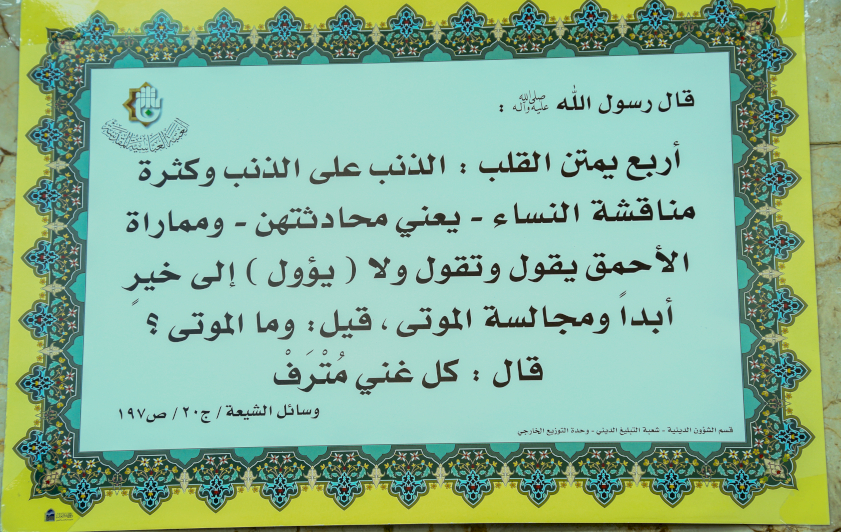 قال رسول الله صلى الله عليه وآله :
العتبة العباسية المقدسة
أربع يمتن القلب : الذنب على الذنب وكثرة
مناقشة النساء - يعني محادثتهن - ومماراة
الأحمق يقول وتقول ولا ( يؤول ) إلى خيرٍ
أبداً ومجالسة الموتى ، قيل : وما الموتى ؟
قال : كل غني مُتْرَفْ
وسائل الشيعة / ج٢٠ / ص١٩٧
قسم الشؤون الدينية - شعبة التبليغ الديني - وحدة التوزيع الخارجي